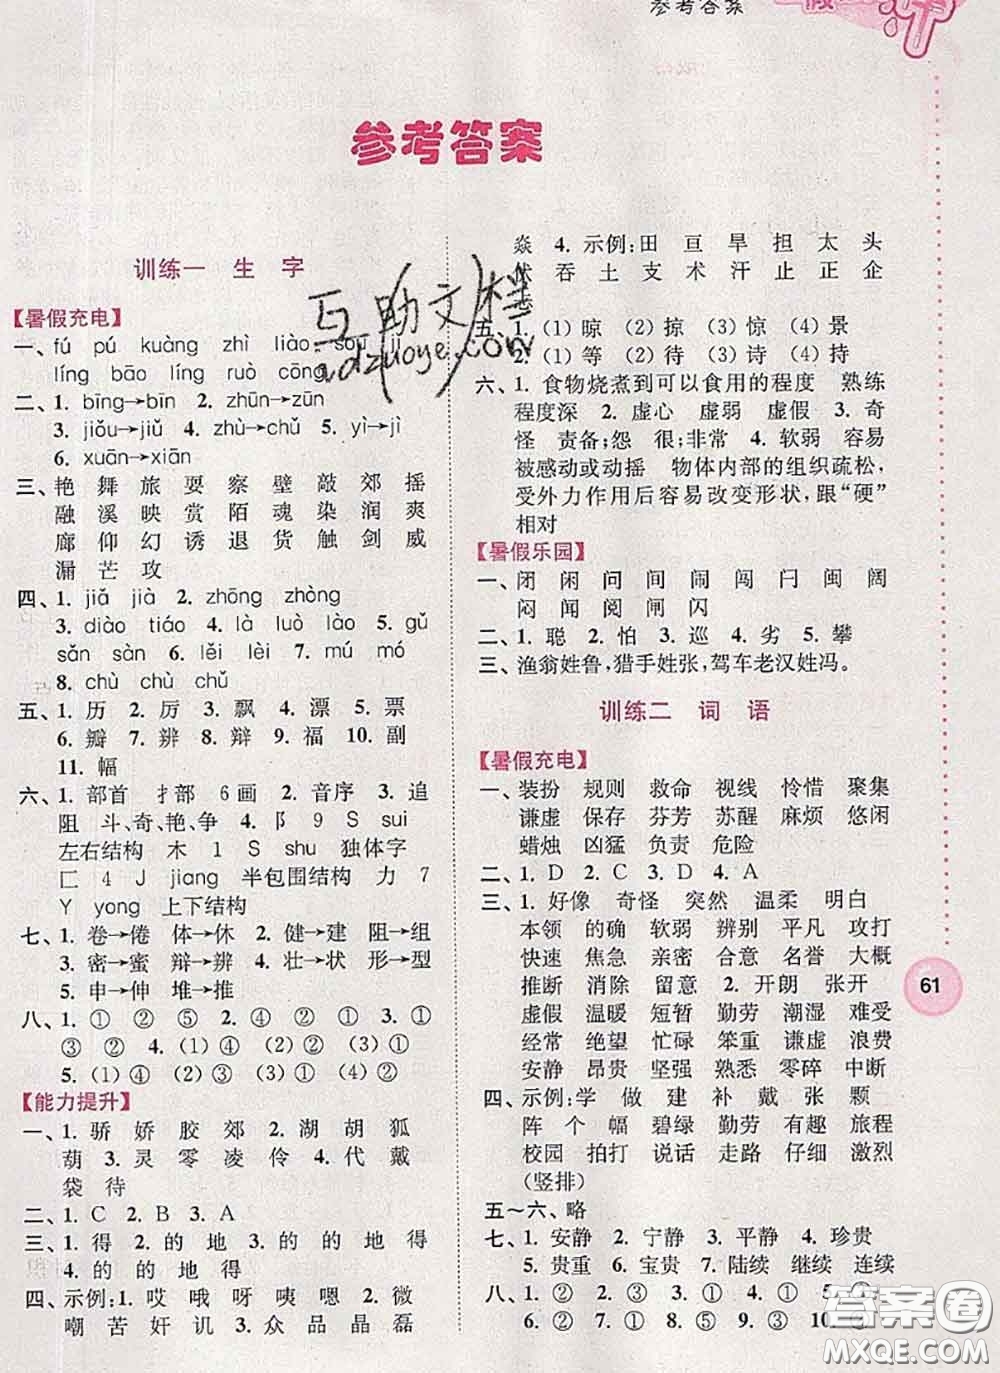 参考答案
参考答案
训练一 生 字
【暑假充电】
一、fú pú kuàng zhì liáo sǒu jì
líng bāo líng ruò cōng
二、1. bīng→bīn 2. zhūn→zūn
3. jiǒu→jiǔ 4. zhù→chǔ 5. yì→jì
6. xuān→xiān
三、艳 舞 旅 耍 察 壁 敲 郊 摇
融 溪 映 赏 陌 魂 染 润 爽
廊 仰 幻 诱 退 货 触 剑 威
漏 芒 攻
四、1. jiǎ jià 2. zhōng zhòng
3. diào tiáo 4. là luò lào 5. gǔ
sǎn sàn 6. lěi lèi 7. mú mó
8. chù chù chǔ
五、1. 历 2. 厉 3. 飘 4. 漂 5. 票
6. 瓣 7. 辨 8. 辩 9. 福 10. 副
11. 幅
六、1. 部首 扌部 6画 2. 音序 3. 追
阻 斗、奇、艳、争 4. 阝 9 S sui
左右结构 木 1 S shu 独体字
匚 4 J jiang 半包围结构 力 7
Y yong 上下结构
七、1. 卷→倦 体→休 2. 健→建 阻→组
3. 密→蜜 辩→辨 4. 壮→状 形→型
5. 申→伸 堆→推
八、1. ① ② ⑤ 2. ④ ② ① 3. ①
③ ② 4. (1)④ (2)② (3)①
5. (1)④ (2)② (3)① (4)③
【能力提升】
一、1. 骄 娇 胶 郊 2. 湖 胡 狐
葫 3. 灵 零 凌 伶 4. 代 戴
袋 待
二、1. C 2. B 3. A
三、1. 得 2. 的 地 3. 的 的 地 得
4. 的 的 地 得
四、示例:1. 哎 哦 呀 咦 嗯 2. 微
嘲 苦 奸 讥 3. 众 品 晶 磊
焱 4. 示例:田 亘 旱 担 太 头
伏 吞 土 支 术 汗 止 正 企
志
五、1. (1) 晾 (2) 掠 (3) 惊 (4) 景
2. (1) 等 (2) 待 (3) 诗 (4) 持
六、1. 食物烧煮到可以食用的程度 熟练
程度深 2. 虚心 虚弱 虚假 3. 奇
怪 责备;怨 很;非常 4. 软弱 容易
被感动或动摇 物体内部的组织疏松,
受外力作用后容易改变形状,跟“硬”
相对
【暑假乐园】
一、闭 闲 问 间 闹 闯 闩 闽 阔
闷 闻 阅 闸 闪
二、1. 聪 2. 怕 3. 巡 4. 劣 5. 攀
三、渔翁姓鲁,猎手姓张,驾车老汉姓冯。
训练二 词 语
【暑假充电】
一、装扮 规则 救命 视线 怜惜 聚集
谦虚 保存 芬芳 苏醒 麻烦 悠闲
蜡烛 凶猛 负责 危险
二、1. D 2. C 3. D 4. A
三、1. 好像 奇怪 突然 温柔 明白
本领 的确 软弱 辨别 平凡 攻打
快速 焦急 亲密 合意 名誉 大概
推断 消除 留意 2. 开朗 张开
虚假 温暖 短暂 勤劳 潮湿 难受
经常 绝望 忙碌 笨重 谦虚 浪费
安静 昂贵 坚强 熟悉 零碎 中断
四、示例:学 做 建 补 戴 张 颗
阵 个 幅 碧绿 勤劳 有趣 旅程
校园 拍打 说话 走路 仔细 激烈
(竖排)
五～六、略
七、1. 安静 2. 宁静 3. 平静 4. 珍贵
5. 贵重 6. 宝贵 7. 陆续 继续 连续
八、1. ② 2. ③ 3. ① 4. ① 5. ①
6. ② 7. ① 8. ⑤ 9. ③ 10. ②
61
互助文档
adzuoye.com
答案圈
MXQE.COM